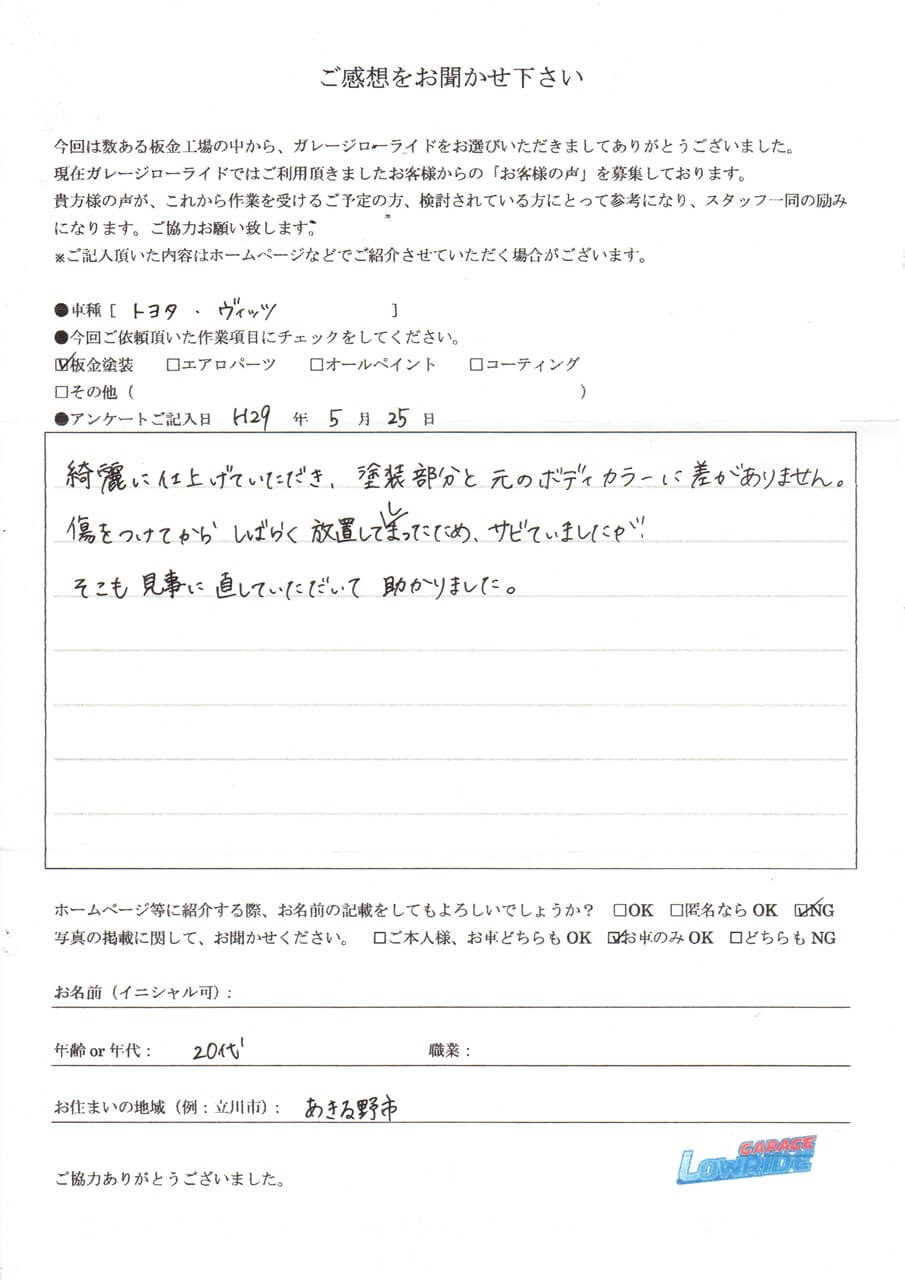 ご感想をお聞かせ下さい
今回は数ある板金工場の中から、ガレージローライドをお選びいただきましてありがとうございました。
現在ガレージローライドではご利用頂きましたお客様からの「お客様の声」を募集しております。
貴方様の声が、これから作業を受けるご予定の方、検討されている方にとって参考になり、スタッフ一同の励み
になります。ご協力お願い致します。
※ご記入頂いた内容はホームページなどでご紹介させていただく場合がございます。
●車種［ トヨタ ・ ヴィッツ ］
●今回ご依頼頂いた作業項目にチェックをしてください。
☑板金塗装 □エアロパーツ □オールペイント □コーティング
□その他（ ）
●アンケートご記入日 H29 年 5 月 25 日
綺麗に仕上げていただき、塗装部分と元のボディカラーに差がありません。
傷をつけてからしばらく放置してしまったため、サビていましたが
そこも見事に直していただいて助かりました。
ホームページ等に紹介する際、お名前の記載をしてもよろしいでしょうか？ □OK □匿名なら OK ☑NG
写真の掲載に関して、お聞かせください。 □ご本人様、お車どちらも OK ☑お車のみ OK □どちらも NG
お名前（イニシャル可）:
年齢 or 年代： 20代 職業：
お住まいの地域（例：立川市）： あきる野市
ご協力ありがとうございました。
GARAGE
LOWRIDE